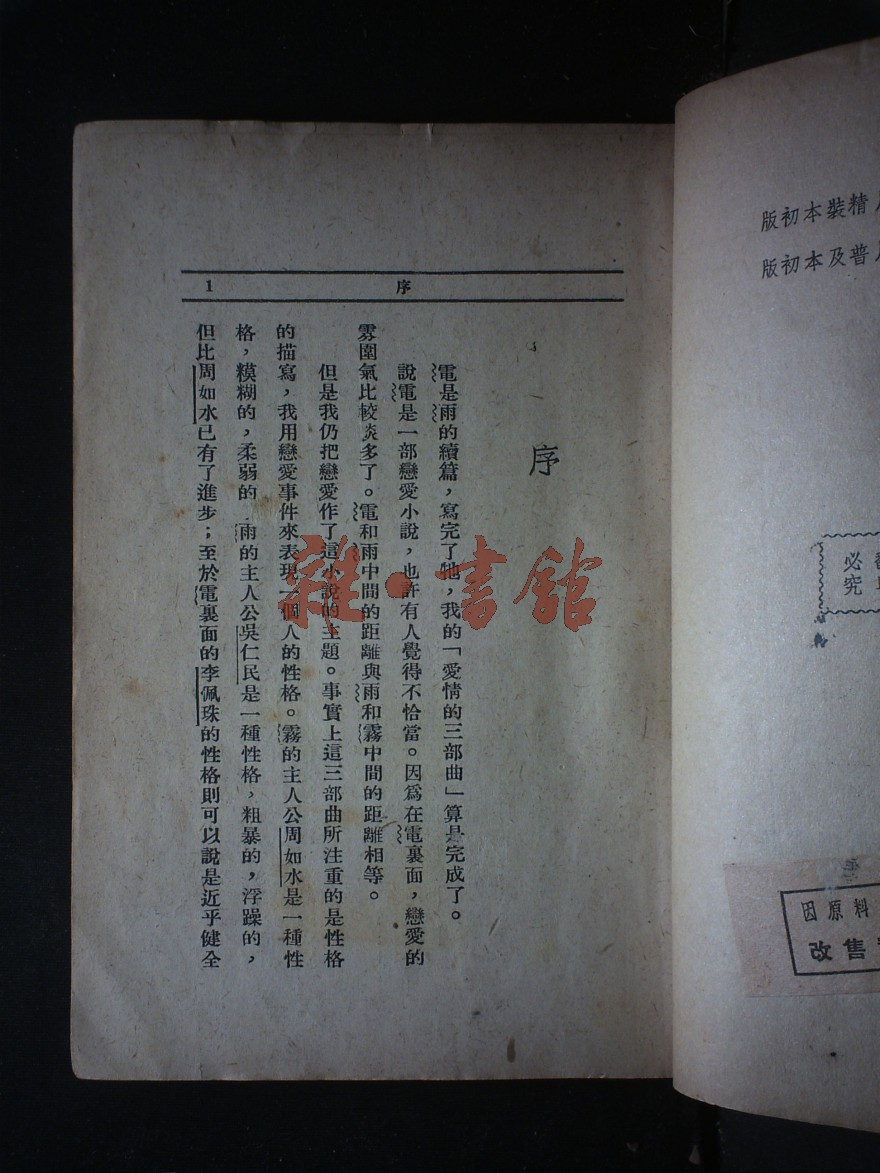 序
1
序
電是雨的續篇，寫完了牠，我的「愛情的三部曲」算是完成了。
說電是一部戀愛小說，也許有人覺得不恰當。因爲在電裏面，戀愛的
雰圍氣比較炎多了。電和雨中間的距離與雨和霧中間的距離相等。
但是我仍把戀愛作了這小說的主題。事實上這三部曲所注重的是性格
的描寫，我用戀愛事件來表現一個人的性格。霧的主人公周如水是一種性
格，糢糊的，柔弱的 雨的主人公吳仁民是一種性格，粗暴的，浮躁的，
但比周如水已有了進步；至於電裏面的李佩珠的性格則可以說是近乎健全
版初本裝精
版初本及普
必究
因原料
改售
雜·書館